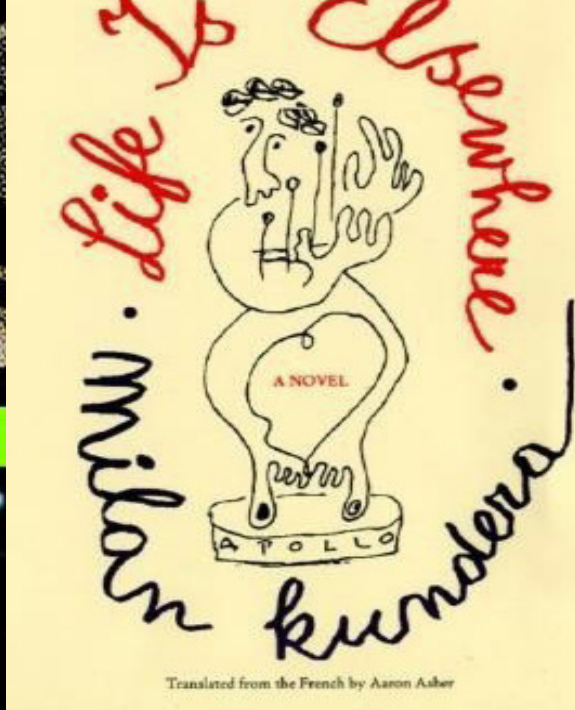 Life Is Elsewhere
A NOVEL
APOLLO
milan kundera
Translated from the French by Aaron Asher